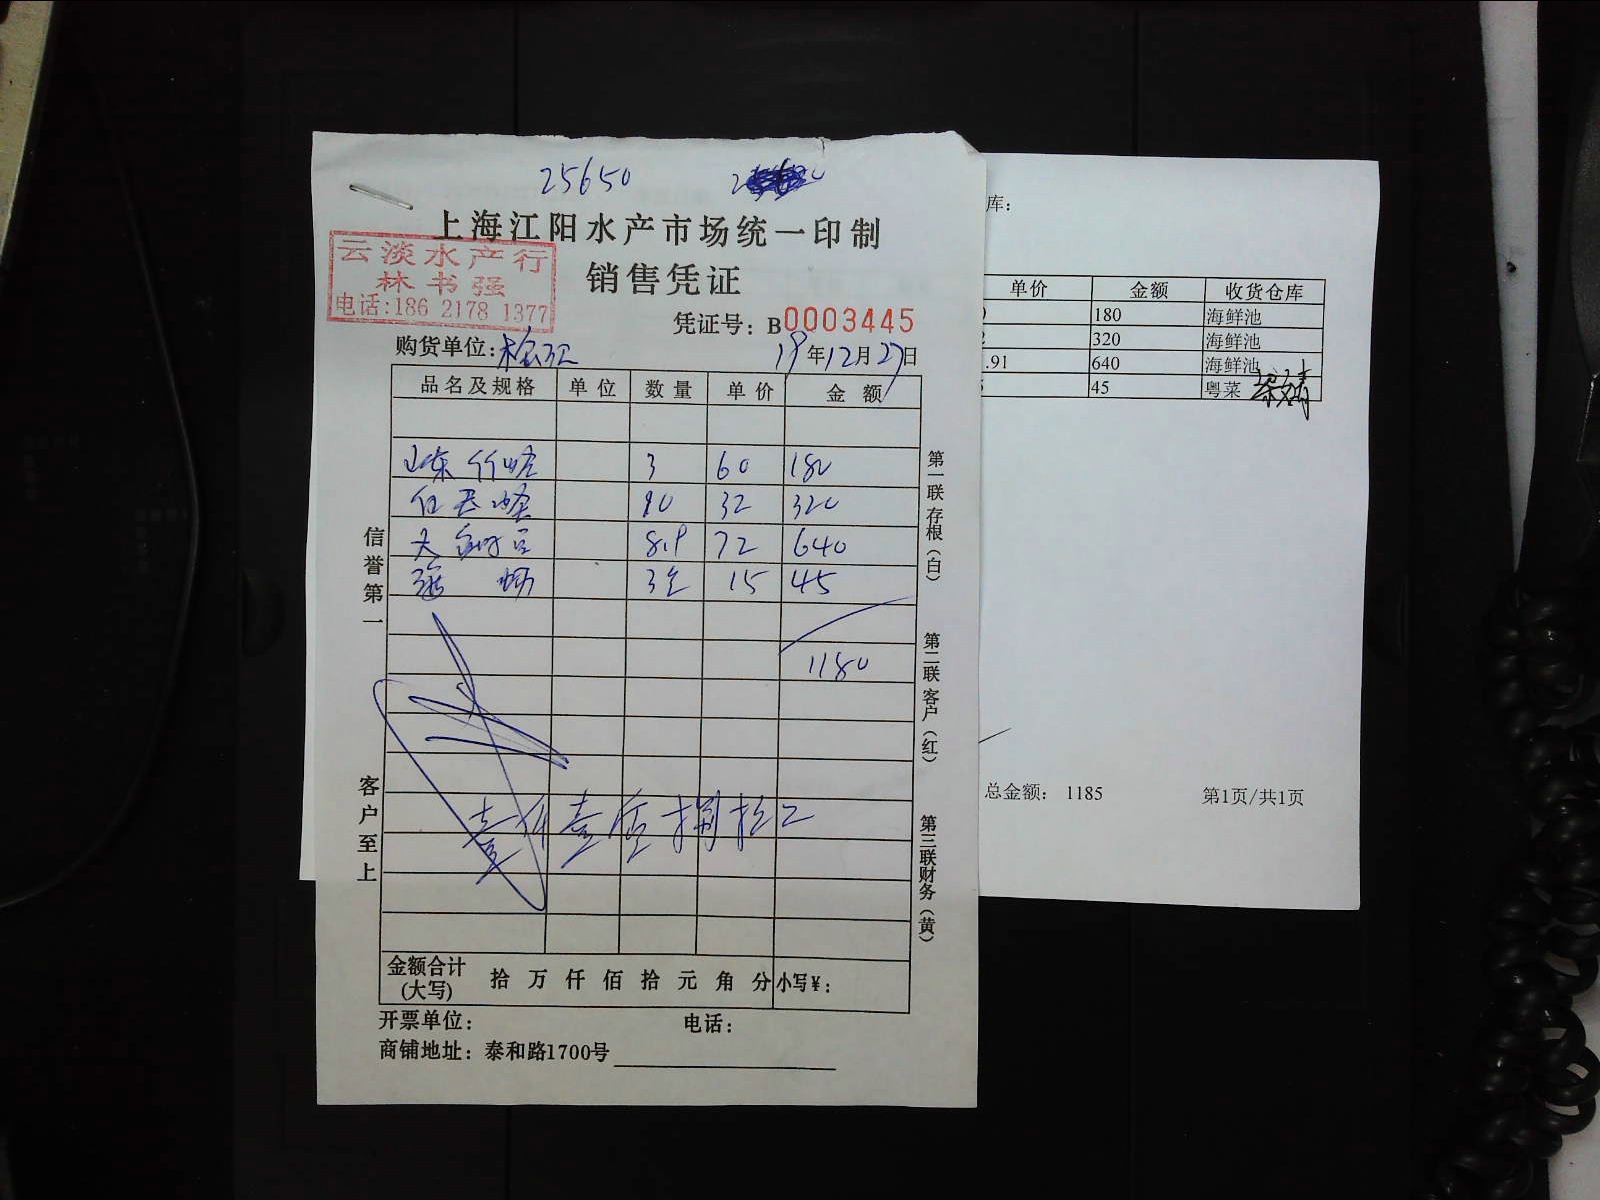 25650
上海江阳水产市场统一印制
云淡水产行
林书强
电话:186 2178 1377
销售凭证
凭证号: B0003445
购货单位:
19年12月27日
品名及规格 单位 数量 单价 金额
山东竹蛏 3 60 180
10 32 320
8.9 72 640
3 15 45
1180
壹仟壹佰捌拾元
金额合计(大写) 拾 万 仟 佰 拾 元 角 分 小写¥:
开票单位: 电话:
商铺地址: 泰和路1700号
信誉第一
客户至上
第一联 存根(白)
第二联 客户(红)
第三联 财务(黄)
库:
单价 金额 收货仓库
180 海鲜池
320 海鲜池
.91 640 海鲜池
45 粤菜
总金额: 1185 第1页/共1页